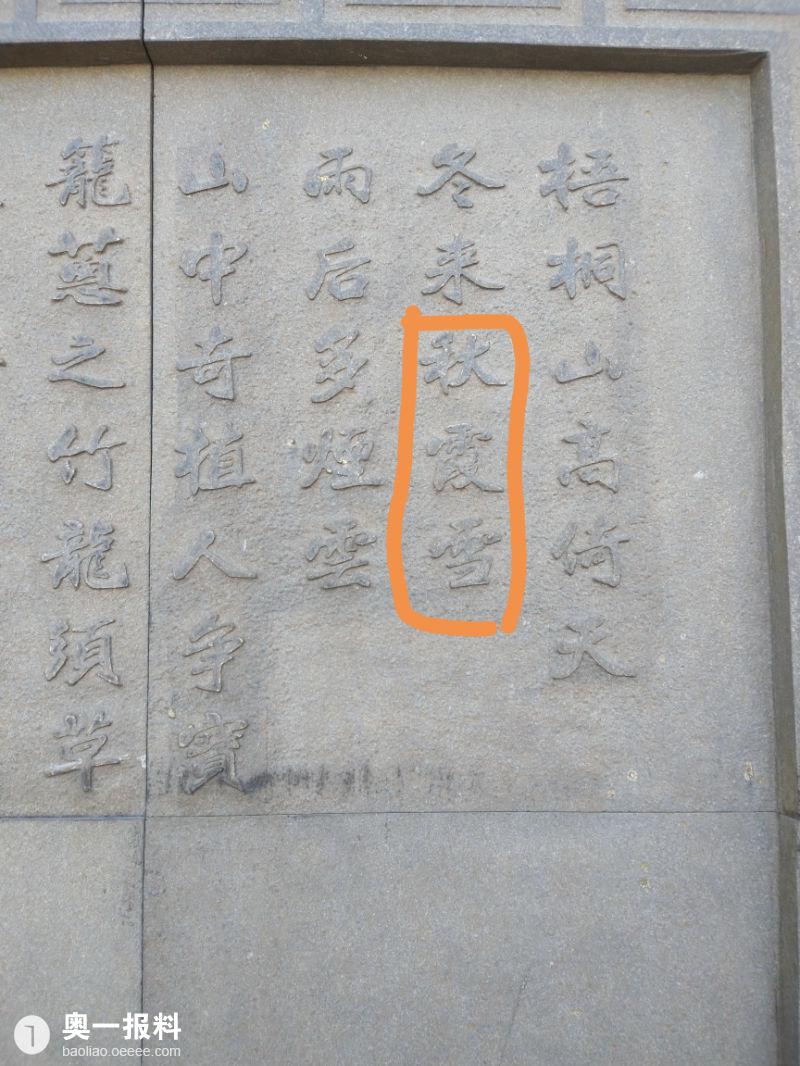 梧桐山高倚天
冬来秋霞雪
雨后多煙雲
山中奇植人争寶
籠蔥之竹龍須草
奥一报料
baoliao.oeeee.com